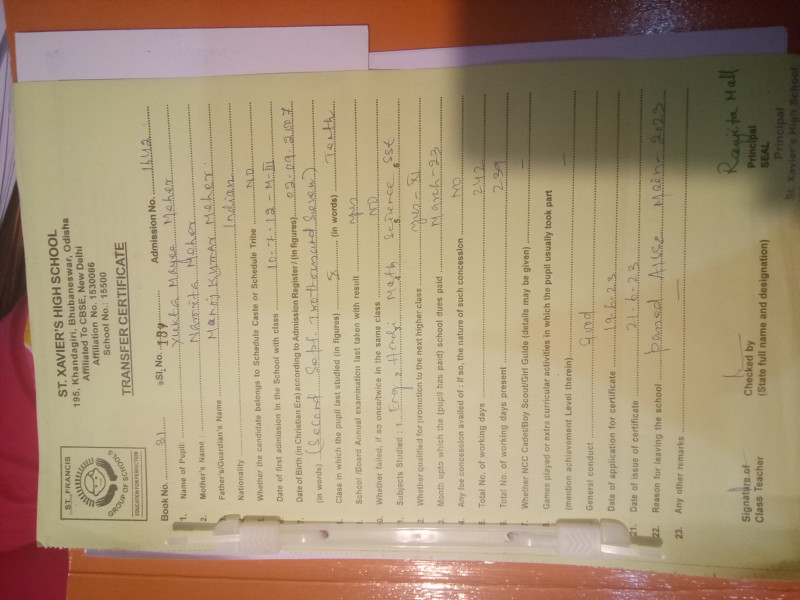 ST. FRANCIS
GROUP OF SCHOOLS
EDUCATION FOR PERFECTION
ST. XAVIER'S HIGH SCHOOL
195, Khandagiri, Bhubaneswar, Odisha
Affiliated To CBSE, New Delhi
Affiliation No. 1530086
School No.: 15500
TRANSFER CERTIFICATE
Book No. 31 Sl. No. 189 Admission No. 1642
1. Name of Pupil: Yukta Mayee Meher
2. Mother's Name: Navnita Meher
Father's/Guardian's Name Manoj Kumar Meher
Nationality Indian
Whether the candidate belongs to Schedule Caste or Schedule Tribe NO
Date of first admission in the School with class 10-7-12-M-III
Date of Birth (in Christian Era) according to Admission Register/(in figures) 02-09-2007
(in words) (Second Sept. Twothousand Seven)
Class in which the pupil last studied (in figures) X (in words) Tenth
School /Board Annual examination last taken with result yes
Whether failed, if so once/twice in the same class NO
Subjects Studied: 1. Eng 2. Hindi Math 4. Science 5. Sst 6.
Whether qualified for promotion to the next higher class yes-XI
Month upto which the (pupil has paid) school dues paid March-23
Any fee concession availed of : if so, the nature of such concession NO
Total No. of working days 242
Total No. of working days present 239
Whether NCC Cadet/Boy Scout/Girl Guide (details may be given) —
Games played or extra curricular activities in which the pupil usually took part
(mention achievement Level therein) —
General conduct Good
Date of application for certificate 19.6.23
21. Date of issue of certificate 21.6.23
22. Reason for leaving the school passed AISSE Main-2023
23. Any other remarks —
Signature of
Class Teacher
Checked by
(State full name and designation)
Ranjita Mall
Principal
SEAL
Principal
St. Xavier's High School